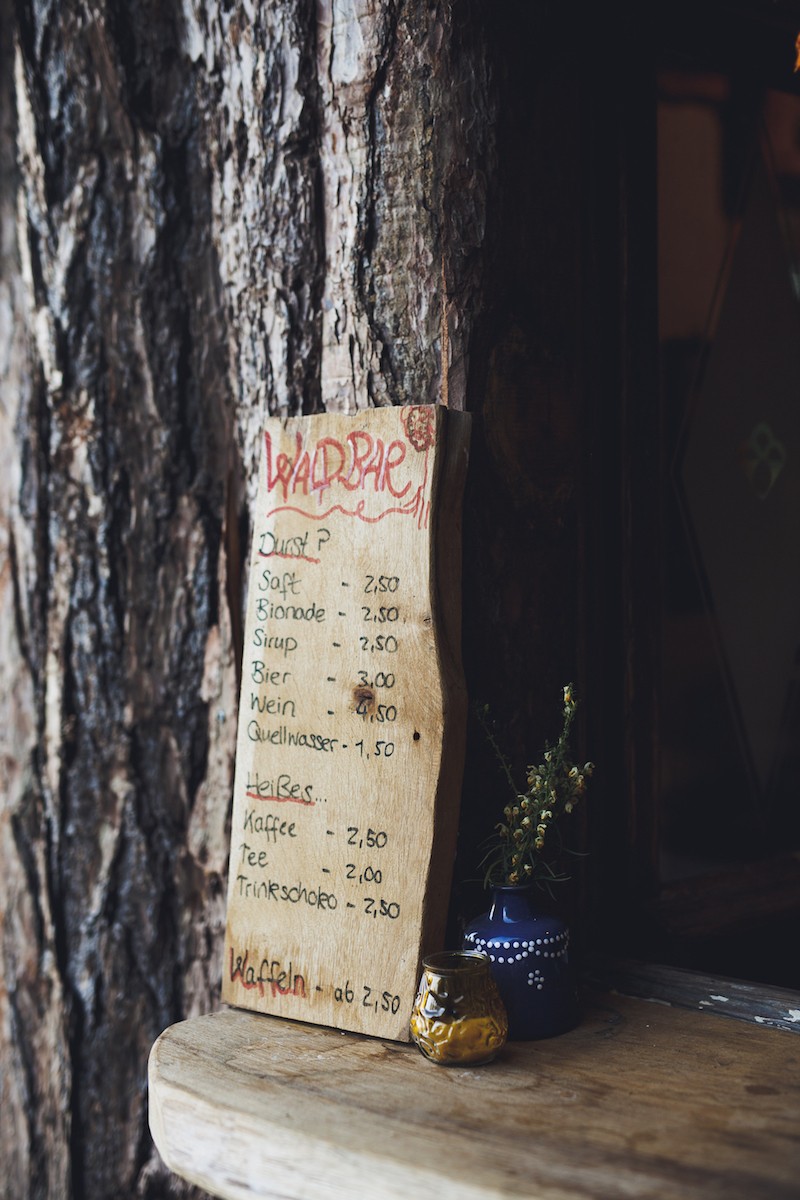 WALDBAR
Durst?
Saft - 2,50
Bionade - 2,50
Sirup - 2,50
Bier - 3,00
Wein - 4,50
Quellwasser - 1,50
Heißes...
Kaffee - 2,50
Tee - 2,00
Trinkschoko - 2,50
Waffeln - ab 2,50